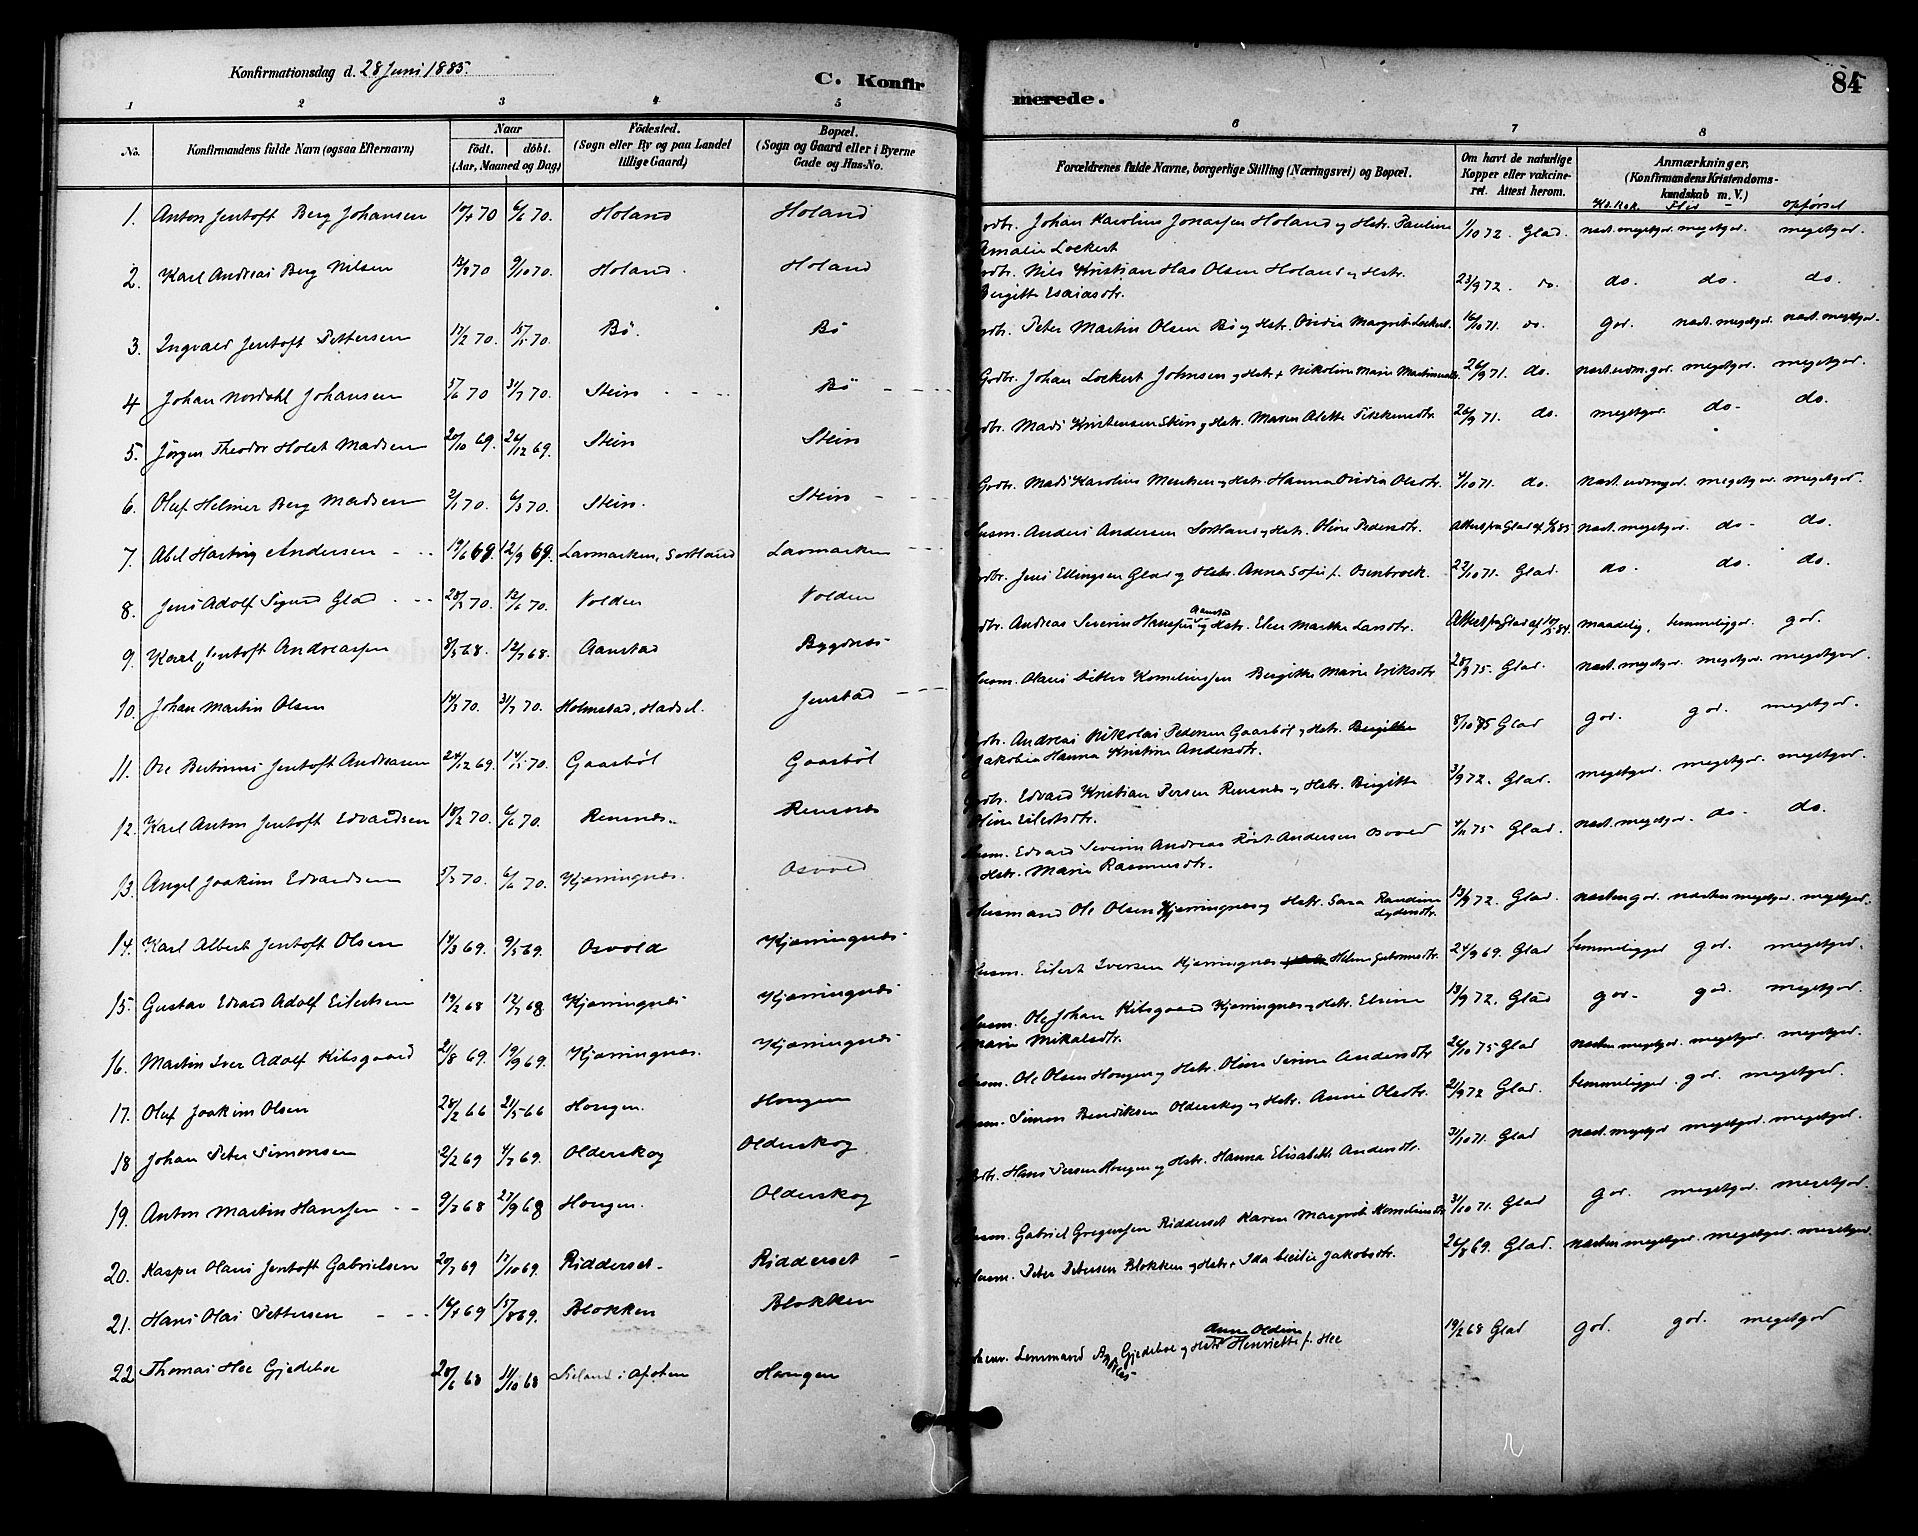 Konfirmationsdag d. 28 Juni 1885.
C. Konfirmerede.
84
1 2 3 4 5 6 7 8
No. Konfirmandens fulde Navn (ogsaa Efternavn) Naar Födt. döbt. (Aar, Maaned og Dag) Födested. (Sogn eller By og paa Landet tillige Gaard) Bopæl. (Sogn og Gaard eller i Byerne Gade og Hus-No.
Forældrenes fulde Navne, borgerlige Stilling (Næringsvei) og Bopæl. Om havt de naturlige Kopper eller vakcineret. Attest herom. Anmærkninger. (Konfirmandens Kristendomskundskab m. V.)
Kd.Kdk. Flid - opførsel
1. Anton Jentoft Berg Johansen 70 6/6 70. Holand Holand
Johan Karolius Jonassen Holand og Hstr. Pauline Amalie Lockert 1/10 72. Glad. næst.megetgod. megetgod. megetgod.
2. Karl Andreas Berg Nilsen 70 9/10 70. Holand. Holand
Nils Kristian Has Olsen Holand og Hstr. Birgitte Esaiasdtr. 23/9 72. do. do. do. do.
3. Ingvald Jentoft Pettersen 17/2 70. 70. Bø. Bø
Peter Martin Olsen Bø og Hstr. Ovidia Margret Lockert. 16/10 71. do. god. næst.megetgod. næst.megetgod.
4 Johan Nordahl Johansen 5/6 70 31/7 70. Stein Bø
Gdbr. Johan Lockert Johnsen og Hstr. Nikoline Marie 26/9 71. do. næst.udm.god. megetgod. megetgod.
5. Jörgen Theodor Holst Madsen 20/10 69. 26/12 69. Stein Stein
Mads Kristensen Stein og Hstr. Maren Aletta 26/9 71. do. megetgod. do. do.
6. Oluf Helmer Berg Madsen 2/1 70. 6/3 70. Stein. Stein
Gdbr. Mads Karolius og Hstr. Hanna Ovidia Olsdtr. 4/10 71. do. næst.udmgod. megetgod. megetgod.
7. Abel Hartvig Andersen 19/6 69. 12/9 69. Lavmarken, Sortland Lavmarken
Husm. Anders Andersen Sortland og Hstr. Oline Pedersdtr. Attest fra Glad af 85 næst.megetgod. do. do.
8. Jens Adolf Sigurd Glad 70. 12/6 70. Volden Volden
Jens Ellingsen Glad og Hstr. Anna Sofie f. Osenbroch. 10 71. Glad. do. do. do.
9. Karl Jentoft Andreassen 8/5 68. 12/7 68. Aanstad Bygdnes
Andreas Severin Hanssen Aanstad og Hstr. Elen Martha Larsdtr. Attest fra Glad af 84. maadelig, temmeliggod. god.
10. Johan Martin Olsen 14/3 70. 31/7 70. Holmstad, Hadsel. Jenstad
Husm. Olaus Ditlev Kornelinssen Birgitte Marie Eriksdtr. 28/9 75. Glad. næst.megetgod. megetgod. megetgod.
11. Ole Bertinus Jentoft Andreasen 24/12 69. 70. Gaasböl Gaasböl
Andreas Nikolai Pedersen Gaasböl og Hstr. Jakobia Hanna Kristine Andersdtr. 8/10 75 Glad god. god. megetgod.
12. Karl Anton Jentoft Edvardsen 18/2 70. 6/6 70. Rensnes. Rensnes
Edvard Kristian Persen Rensnes og Hstr. Birgitte Oline Eilertsdtr. 3/9 72. Glad. megetgod. megetgod. megetgod.
13. Angel Joakim Edvardsen 5/3 70. 6/6 70. Kjørringnes. Osvold
Husm. Edvard Severin Andreas Röst Andersen Osvold og Hstr. Marie Rasmusdtr. 75 Glad. næst.megetgod. do. do.
14. Karl Albert Jentoft Olsen 14/3 69. 9/5 69. Osvold Kjørringnes
Husmand Ole Olsen Kjørringnes og Hstr. Sara Randine 13/9 72. Glad. næstengod. næsten megetgod. megetgod.
15. Gustav Edvard Adolf Eilertsen 19/2 68 12/7 68 Kjørringnes Kjørringnes
Husm. Eilert Iversen Kjørringnes Helene 24/9 69. Glad temmeliggod god. megetgod.
16. Martin Iver Adolf Kibsgaard 21/8 69. 19/9 69. Kjørringnes. Kjørringnes
Husm. Ole Johan Kibsgaard Kjørringnes og Hstr. Elsine Marie Mikalsdtr. 13/9 72. Glad god. god. megetgod.
17. Oluf Joakim Olsen 28/2 66 21/5 66 Hougen. Hougen
Husm. Ole Olsen Hougen og Hstr. Oline Serine Andersdtr 26/10 75 Glad næsten megetgod. megetgod. megetgod.
18 Johan Peter Simonsen 2/2 69 4/7 69. Olderskog Olderskog
Husm. Simon Bendiksen Olderskog og Hstr. Anne Olsdtr. 21/9 72 Glad. temmeliggod. god. megetgod.
19. Anton Martin Hanssen 9/7 68 27/9 68 Hougen. Olderskog
Hans Persen Hougen og Hstr. Hanna Elisabeth Andersdtr. 31/10 71. Glad næst.megetgod. megetgod. megetgod.
20. Kasper Hans Jentoft Gabrielsen 20/7 69 17/10 69. Ridderset. Ridderset
Husm. Gabriel Gregussen Ridderset Karen Margrete Kornelinsdtr 31/10 71. Glad god. megetgod. megetgod.
21. Hans Olai Pettersen 16/4 69 15/8 69. Blokken Blokken
Husm. Peter Petersen Blokken og Hstr. Ida Cecilie Jakobsdtr. 26/8 69. Glad. næsten megetgod. megetgod. megetgod.
22 Thomas Hee Gjedeboe 20/6 68 /10 68 i Afoten Hougen
Lensmand Andreas Gjedeboe og Hstr Anne Oldine Henriette f. Hee 19/2 68 Glad god. god. megetgod